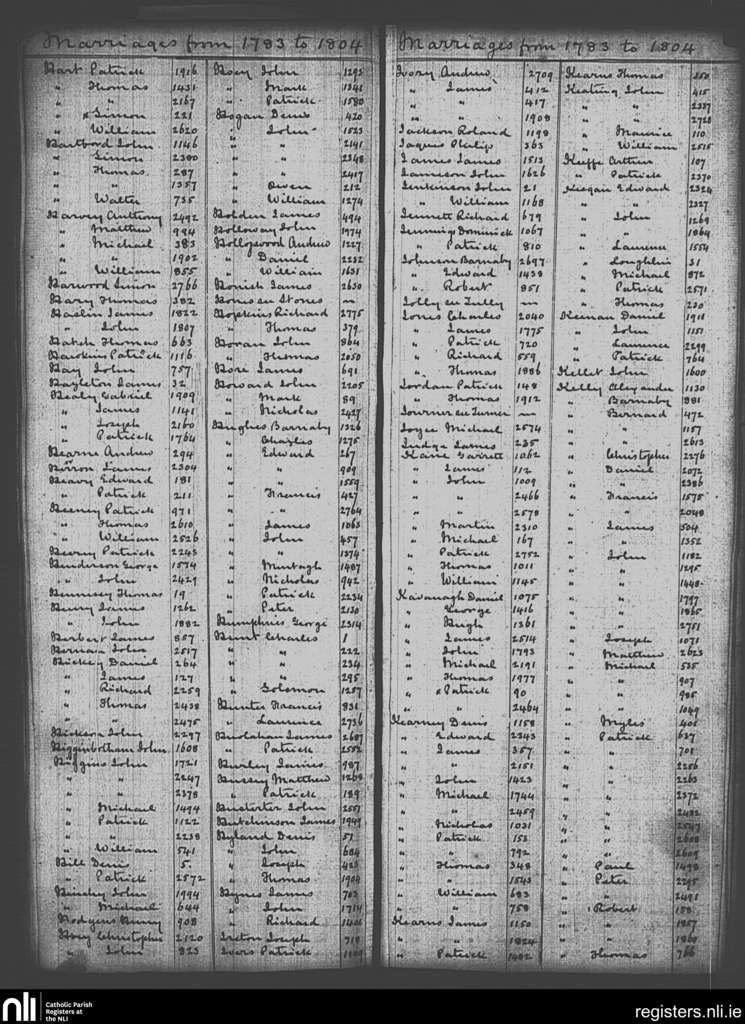 Marriages from 1783 to 1804
Hart Patrick 1916
" Thomas 1431
" " 2167
" Simon 221
" William 2620
Hartford John 1146
" Simon 2380
" Thomas 287
" " 1357
" Walter 735
Harvey Anthony 2492
" Matthew 994
" Michael 383
" " 1902
" William 855
Harwood Simon 2766
Hary Thomas 382
Haslin James 1822
" John 1807
Hatch Thomas 663
Hawkins Patrick 1116
Hay John 757
Hayleton James 32
Healy Gabriel 1909
" James 1141
" Joseph 2160
" Patrick 1764
Hearne Andrew 294
Herron James 2304
Heavy Edward 181
" Patrick 211
Heeney Patrick 971
" Thomas 2610
" William 2526
Heery Patrick 2243
Henderson George 1574
" John 2429
Hennessy Thomas 19
Henry James 1262
" John 1882
Herbert James 857
Hernan John 2517
Hickey Daniel 264
" James 127
" Richard 2259
" Thomas 2438
" " 2475
Hickson John 2297
Higginbotham John 1608
Higgins John 1721
" " 2247
" " 2378
" Michael 1494
" Patrick 1122
" " 2238
" William 541
Hill Denis 5
" Patrick 2572
Hinchy John 1994
" Michael 644
Hodgens Henry 908
Hoey Christopher 2120
" John 823
Hoey John 1293
" Mark 1341
" Patrick 1580
Hogan Denis 420
" John 1523
" " 2141
" " 2348
" " 2417
" Owen 212
" William 1274
Holden James 494
Holloway John 1974
Hollywood Andrew 1227
" Daniel 2232
" William 1631
Honich James 2630
Hones see Stones —
Hopkins Richard 2775
" Thomas 379
Horan John 864
" Thomas 2050
Hore James 691
Howard John 2205
" Mark 89
" Nicholas 2427
Hughes Barnaby 1326
" Charles 1275
" Edward 267
" " 909
" " 1559
" Francis 427
" " 2764
" James 1063
" John 457
" " 1374
" Murtagh 1407
" Nicholas 942
" Patrick 2234
" Peter 2130
Humphries George 2314
Hunt Charles 1
" " 222
" " 234
" " 295
" Solomon 1257
Hunter Francis 831
" Laurence 2736
Hurlahan James 2687
" Patrick 2552
Hurley James 987
Hussey Matthew 1268
" Patrick 189
Husterter John 2557
Hutchinson James 1949
Hyland Denis 57
" John 684
" Joseph 423
" Thomas 1904
Hynes James 703
" John 1714
" Richard 1406
Ireton Joseph 719
Ivers Patrick
Marriages from 1783 to 1804
Ivory Andrew 2709
" James 412
" " 417
" " 1908
Jackson Roland 1198
Jaques Philip 363
James James 1513
Jameson John 1626
Jenkinson John 21
" William 1168
Jennett Richard 679
Jennings Dominick 1067
" Patrick 810
Johnson Barnaby 2697
" Edward 1438
" Robert 851
Jolly see Tully —
Jones Charles 2040
" James 1775
" Patrick 720
" Richard 559
" Thomas 1886
Jordan Patrick 148
" Thomas 1912
Journer see Turner —
Joyce Michael 2574
Judge James 235
Kaine Garrett 1062
" James 112
" John 1009
" " 2466
" " 2578
" Martin 2310
" Michael 167
" Patrick 2752
" Thomas 1011
" William 1145
Kavanagh Daniel 1075
" George 1416
" Hugh 1361
" James 2514
" John 1793
" Michael 2191
" Thomas 1977
" Patrick 90
" " 2464
Kearney Denis 1158
" Edward 2343
" James 357
" " 2151
" John 1423
" Michael 1744
" " 2459
" Nicholas 1031
" Patrick 153
" " 792
" Thomas 348
" " 1543
" William 683
" " 758
Kearns James 1150
" " 1824
" Patrick 1482
Kearns Thomas 250
Keating John 415
" " 2337
" " 2728
" Maurice 110
" William 2515
Keeffe Arthur 107
" Patrick 2370
Keegan Edward 2324
" " 2327
" John 1269
" " 1864
" Laurence 1554
" Loughlin 31
" Michael 872
" Patrick 2571
" Thomas 230
Keenan Daniel 1918
" John 1151
" Laurence 2299
" Patrick 764
Kellet John 1600
Kelly Alexander 1130
" Barnaby 881
" Bernard 472
" " 1157
" " 2613
" Christopher 2276
" Daniel 2072
" " 2386
" Francis 1575
" " 2048
" James 504
" " 1352
" John 1182
" " 1295
" " 1448
" " 1797
" " 1865
" " 2751
" Joseph 1071
" Matthew 2623
" Michael 535
" " 907
" " 985
" " 1049
" Myles 405
" Patrick 637
" " 701
" " 2256
" " 2263
" " 2372
" " 2482
" " 2547
" " 2608
" " 2609
" Paul 1498
" Peter 2295
" " 2491
" Robert 158
" " 1857
" " 1860
" Thomas 766
nli
Catholic Parish
Registers at
the NLI
registers.nli.ie